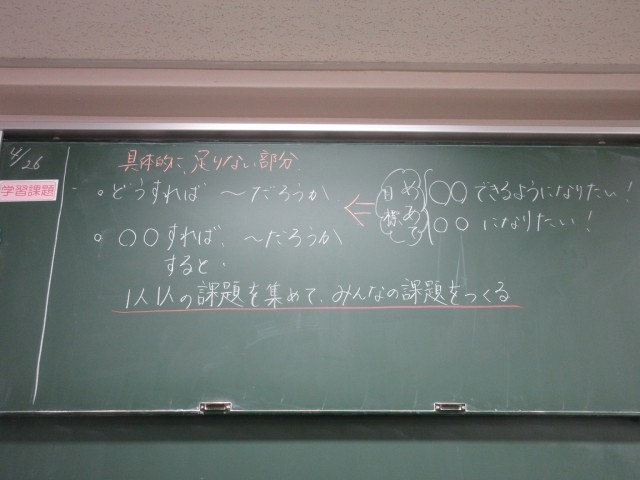 4/26
学習課題
具体的に、足りない部分
。どうすれば 〜だろうか
。〇〇すれば、〜だろうか
すると、
めあて
目標
〇〇できるようになりたい！
〇〇になりたい！
1人1人の課題を集めて、みんなの課題をつくる